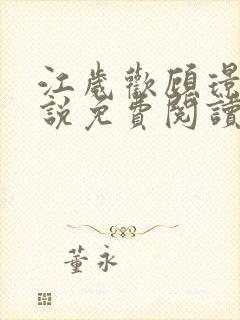 江歲歡顧璟
說免費閱讀
董永